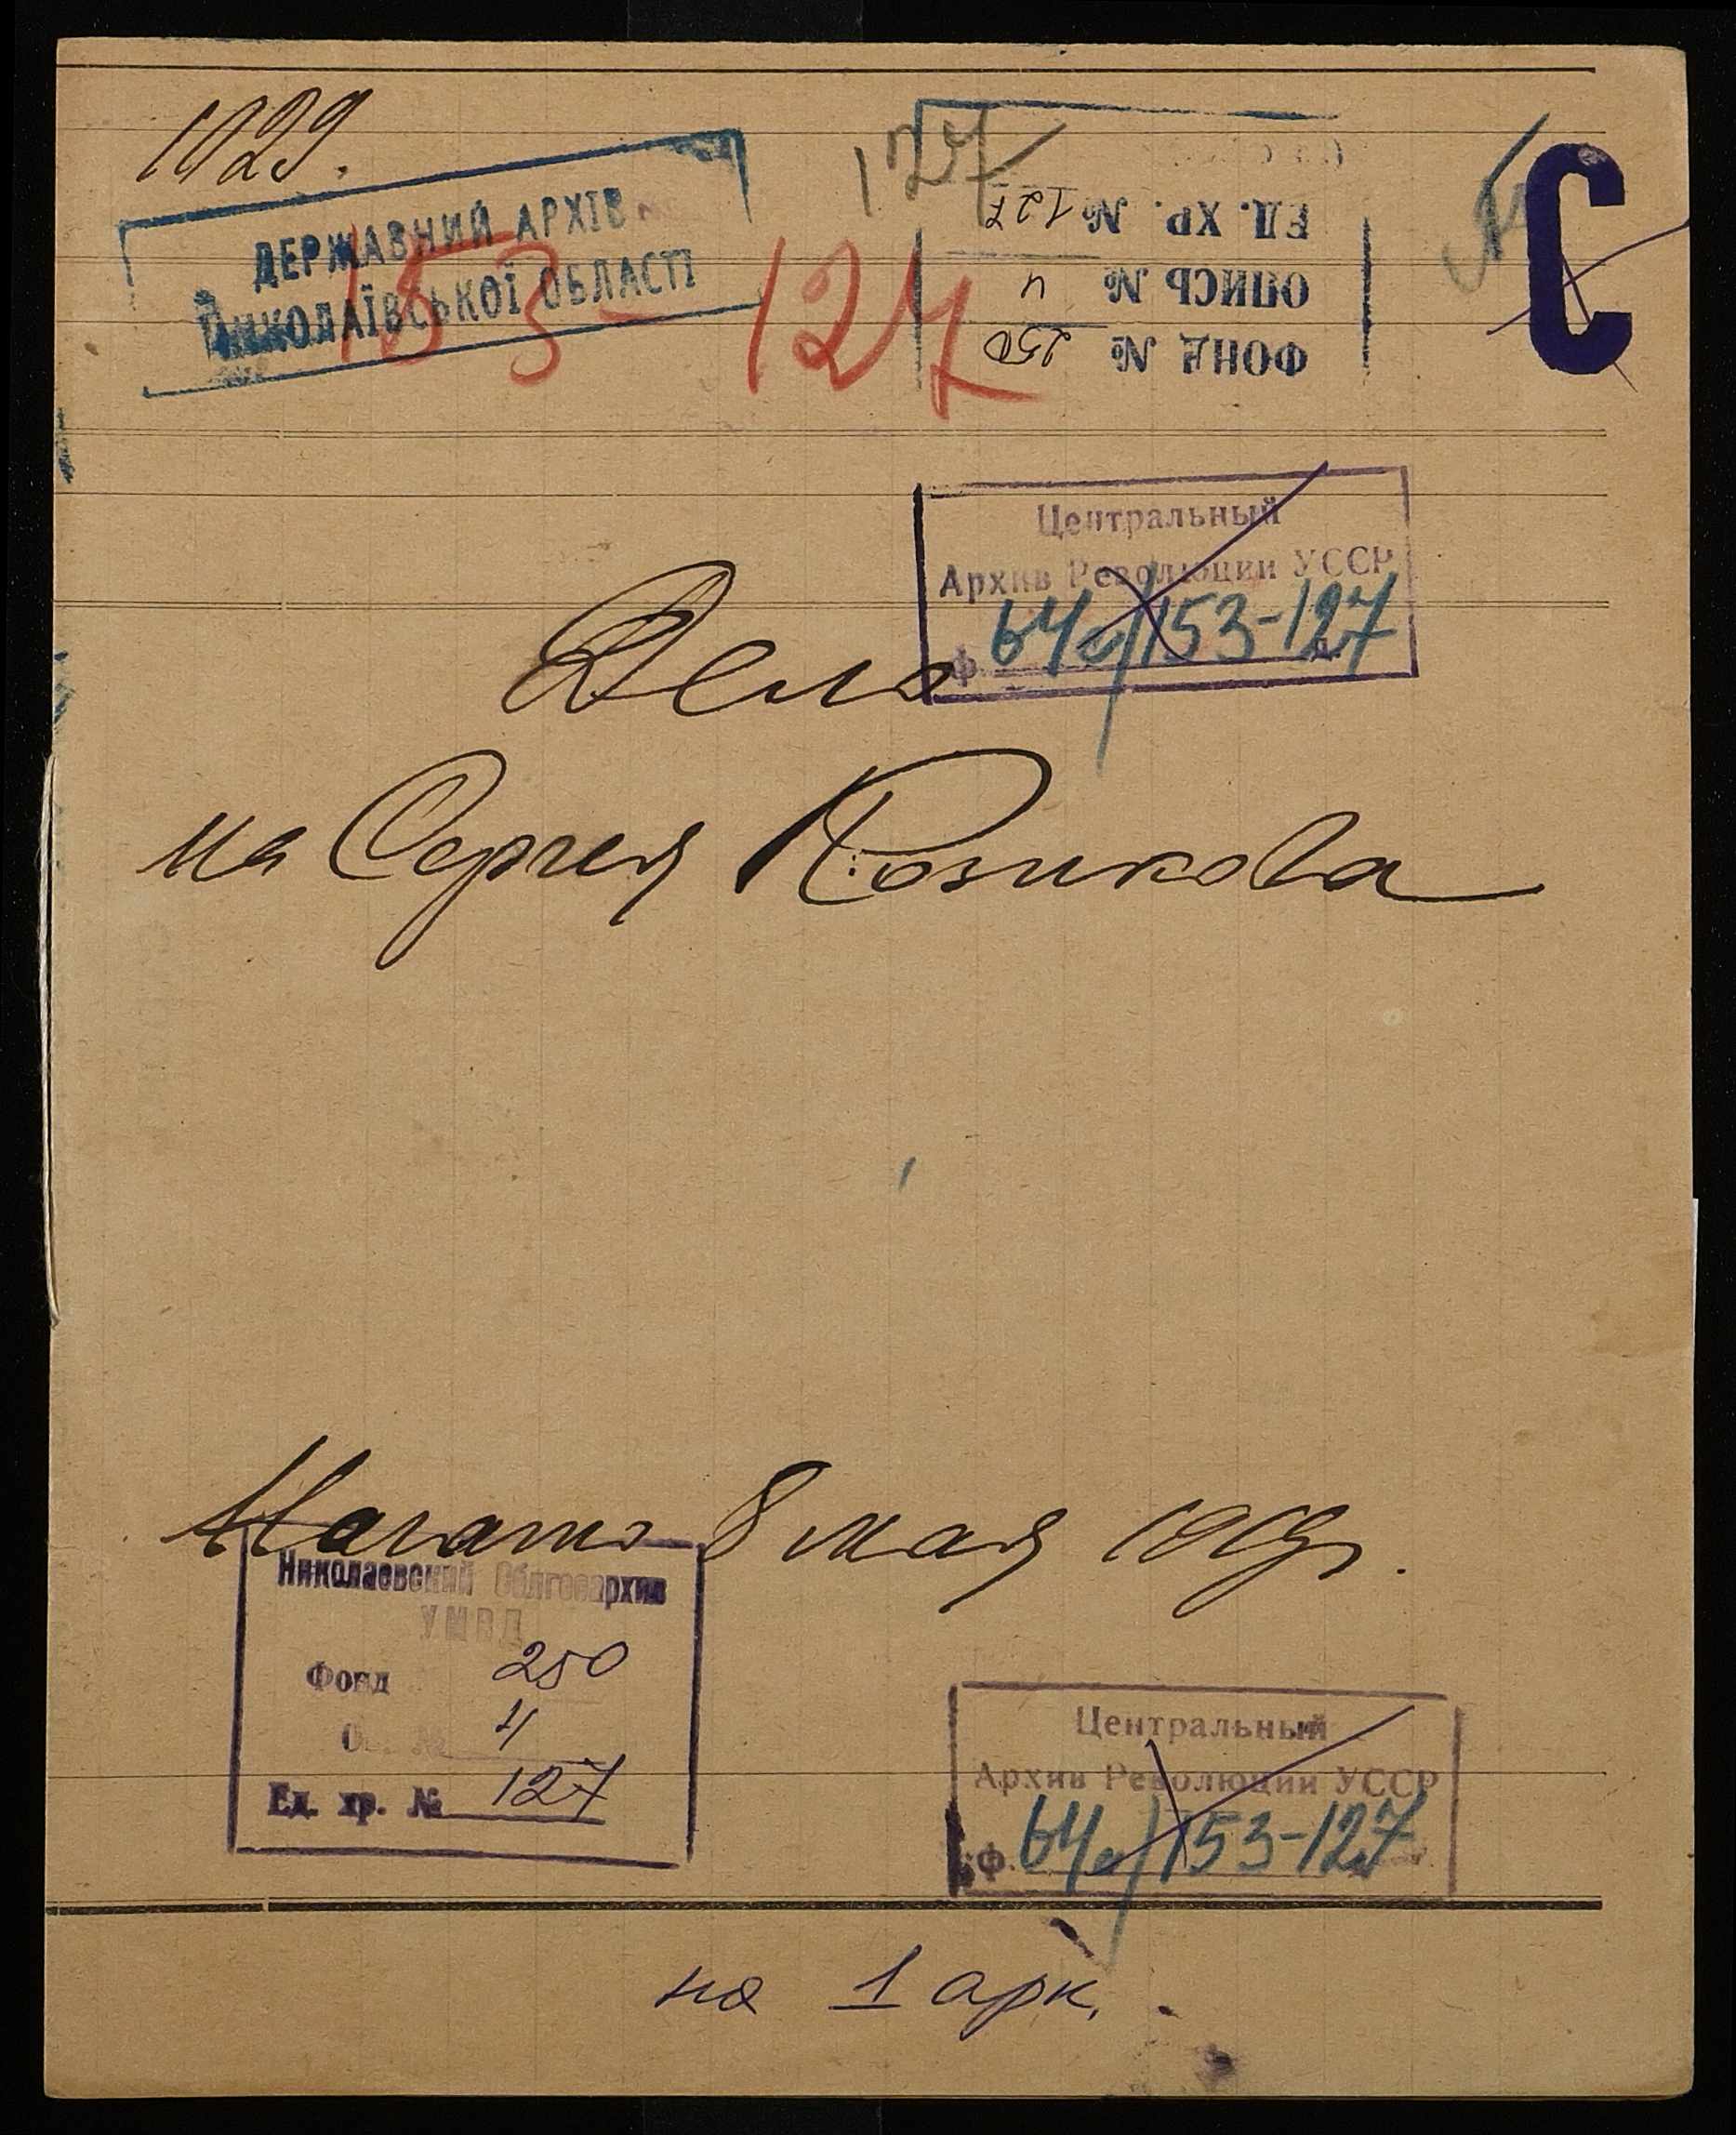 1029.
ДЕРЖАВНИЙ АРХІВ
МИКОЛАЇВСЬКОЇ ОБЛАСТІ
127
153-127
С
ФОНД № 250
ОПИСЬ № 4
ЕД. ХР. № 127
Центральный
Архив Революции УССР
ф. 64с/153-127
Дело
на Сергея Розикова
Начато 8 мая 1919 г.
Николаевский Облгосархив
УМВД
Фонд 250
Оп. № 4
Ед. хр. № 127
Центральный
Архив Революции УССР
ф. 64с/153-127
на 1 арк.